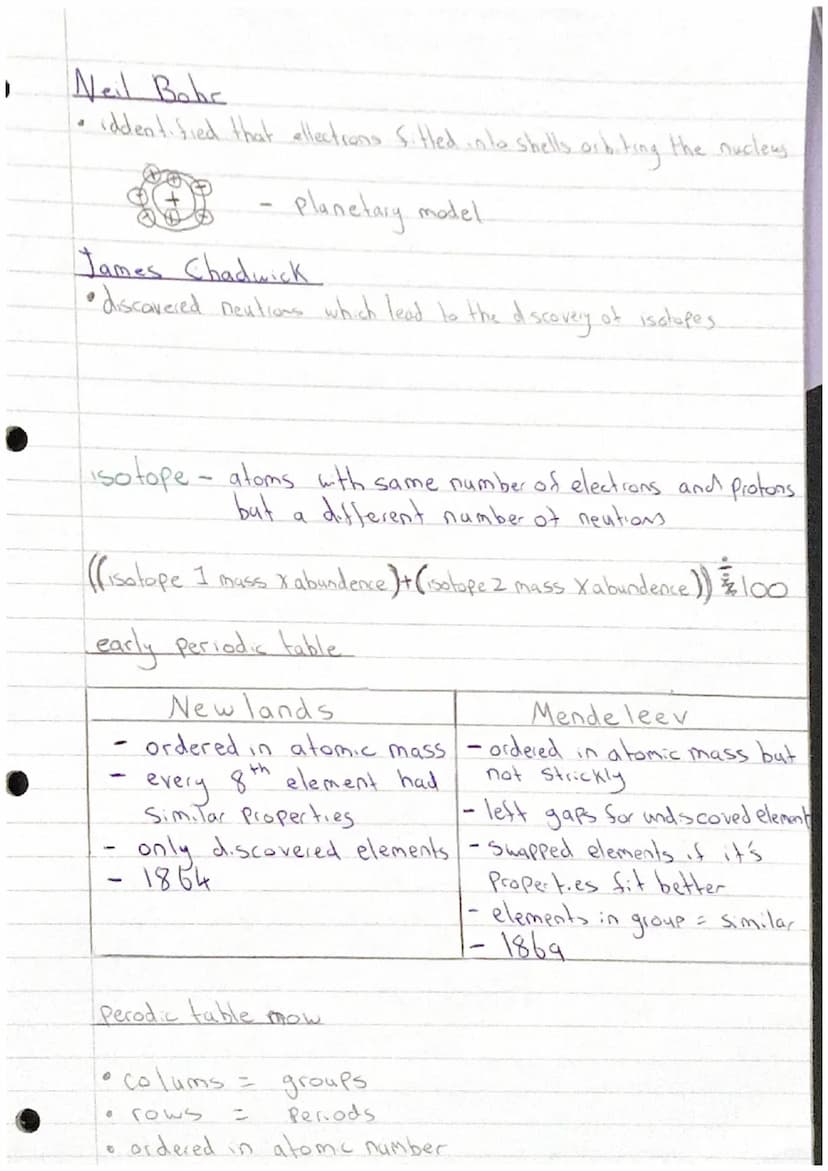 Neil Bohr
• iddentified that ellectrons fitted into shells orbiting the nucleus
+
- planetary model
James Chadwick
• discovered neutrons which lead to the discovery of isotopes
isotope - atoms with same number of electrons and protons
but a different number of neutrons
((isotope 1 mass x abundence)+(isotope 2 mass x abundence)) ÷ 100
early periodic table
Newlands
- ordered in atomic mass
- every 8th element had
similar properties
- only discovered elements
- 1864
Mendeleev
- ordered in atomic mass but
not strickly
- left gaps for undscoved element
- swapped elements if it's
properties fit better
- elements in group = similar
- 1869
perodic table now
• colums = groups
• rows = periods
• ordered in atomic number